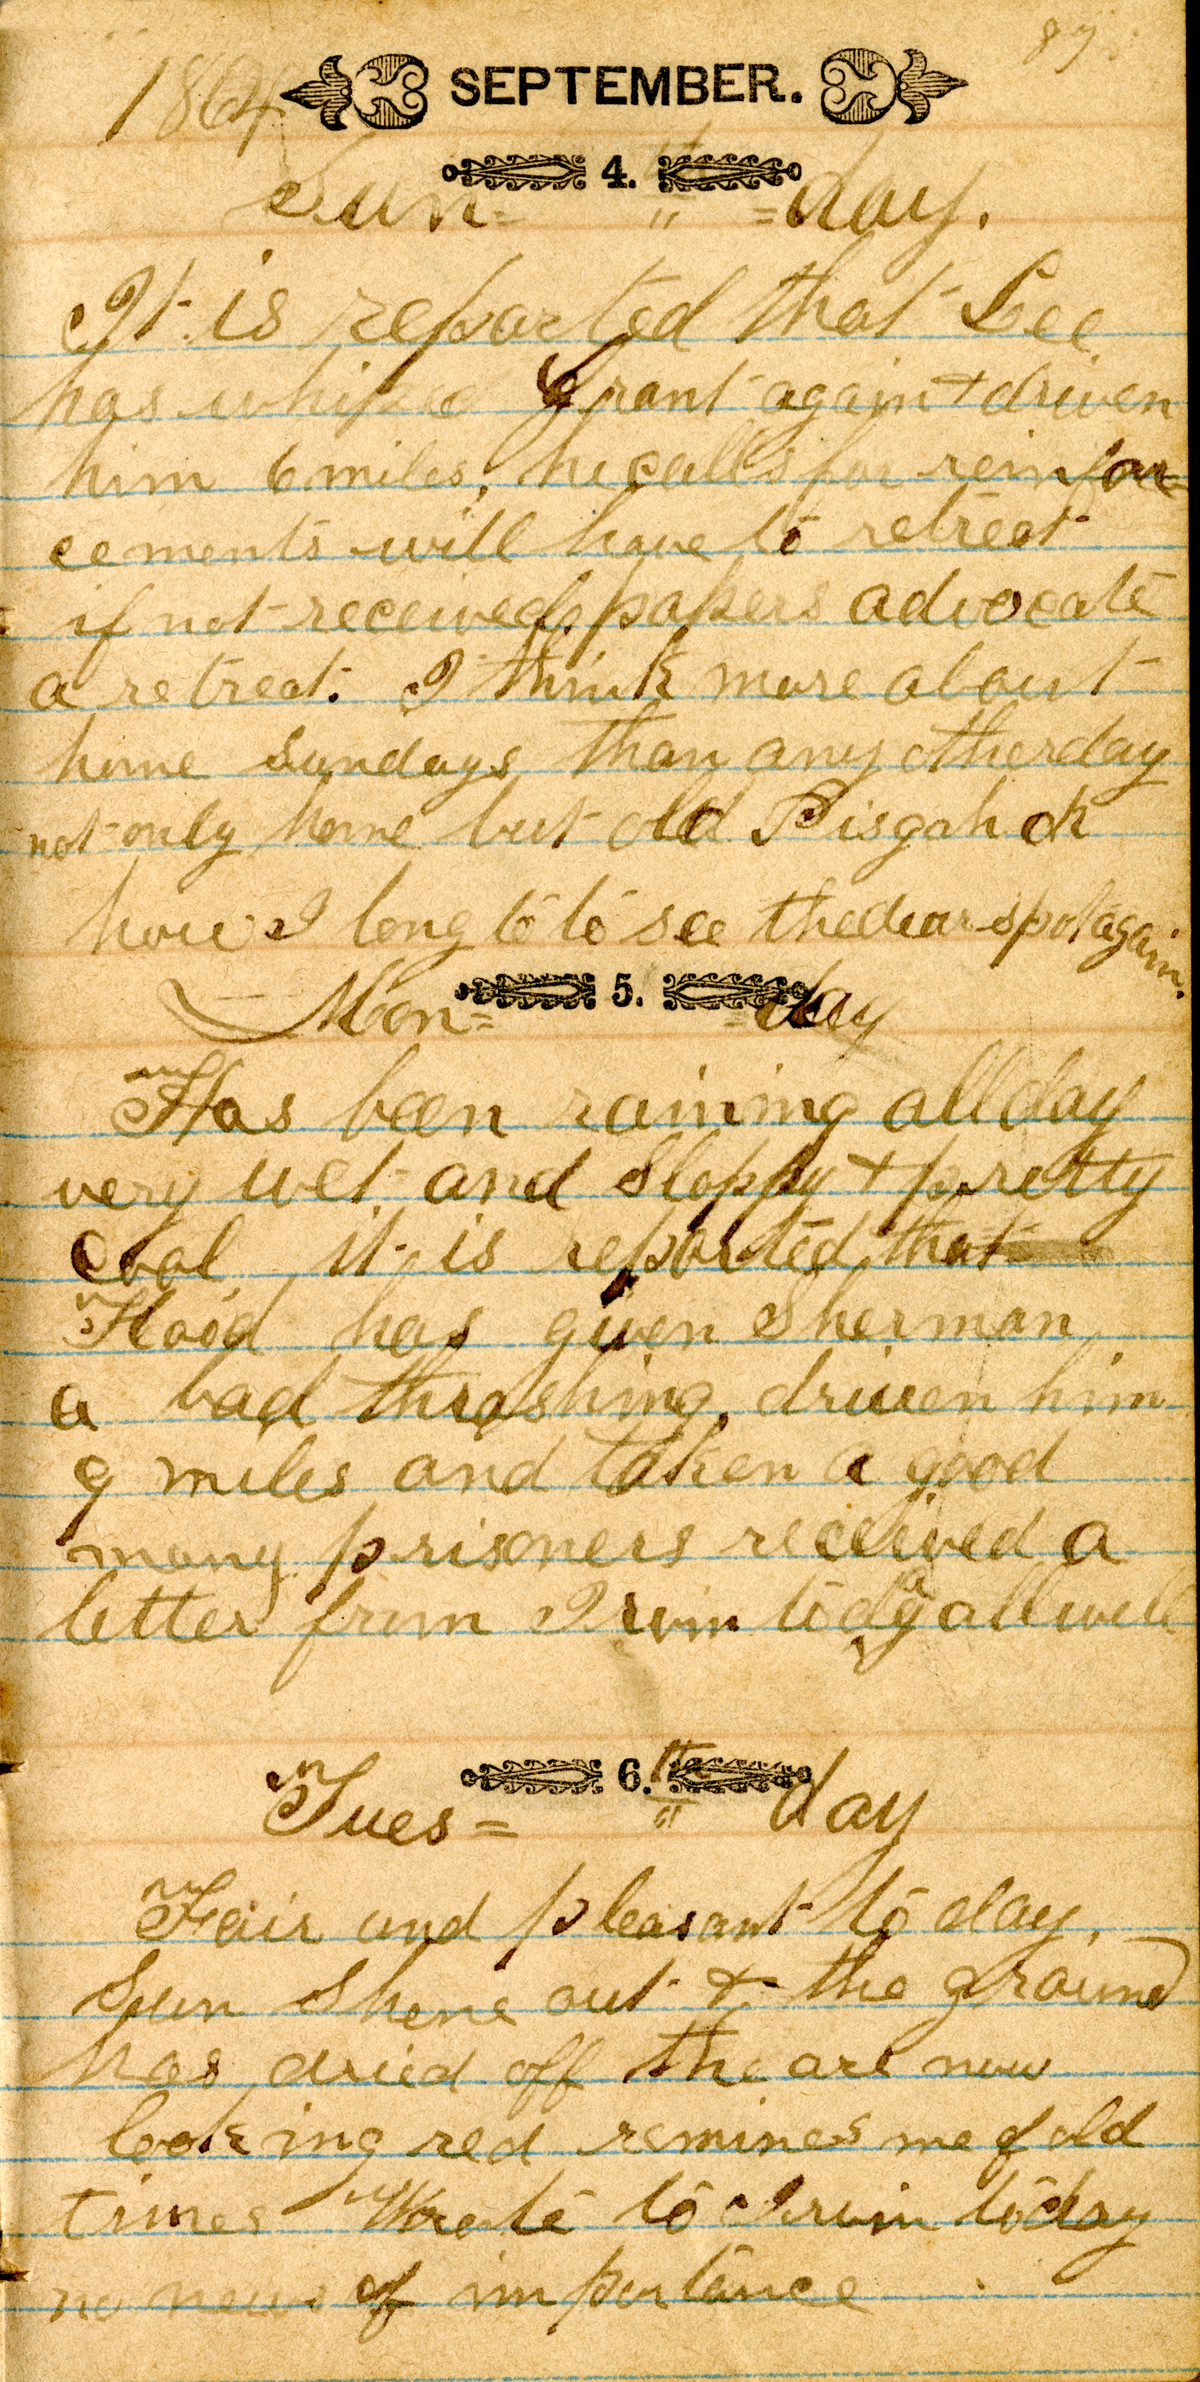 87.
1864 SEPTEMBER.
4. th
Sun= =day.
It is reported that Lee
has whiped Grant again + driven
him 6 miles, he calls for reinfor
cements will have to retreat
if not received, papers advocate
a retreat. I think more about
home Sundays than any other day
not only home but old Pisgah oh
how I long to to see the dear spot again.
5.
Mon= =day
Has been raining all day
very wet and Sloppy + pretty
cool, it is reported that
Hood has given Sherman
a bad thrashing, driven him
9 miles and taken a good
many prisoners received a
letter from Irvin today all well
6. th
Tues= day
Fair and pleasant to day,
Sun Shene out + the ground
has dried off the are now
looking red remines me of old
times Wrote to Irvin today
no news of importance